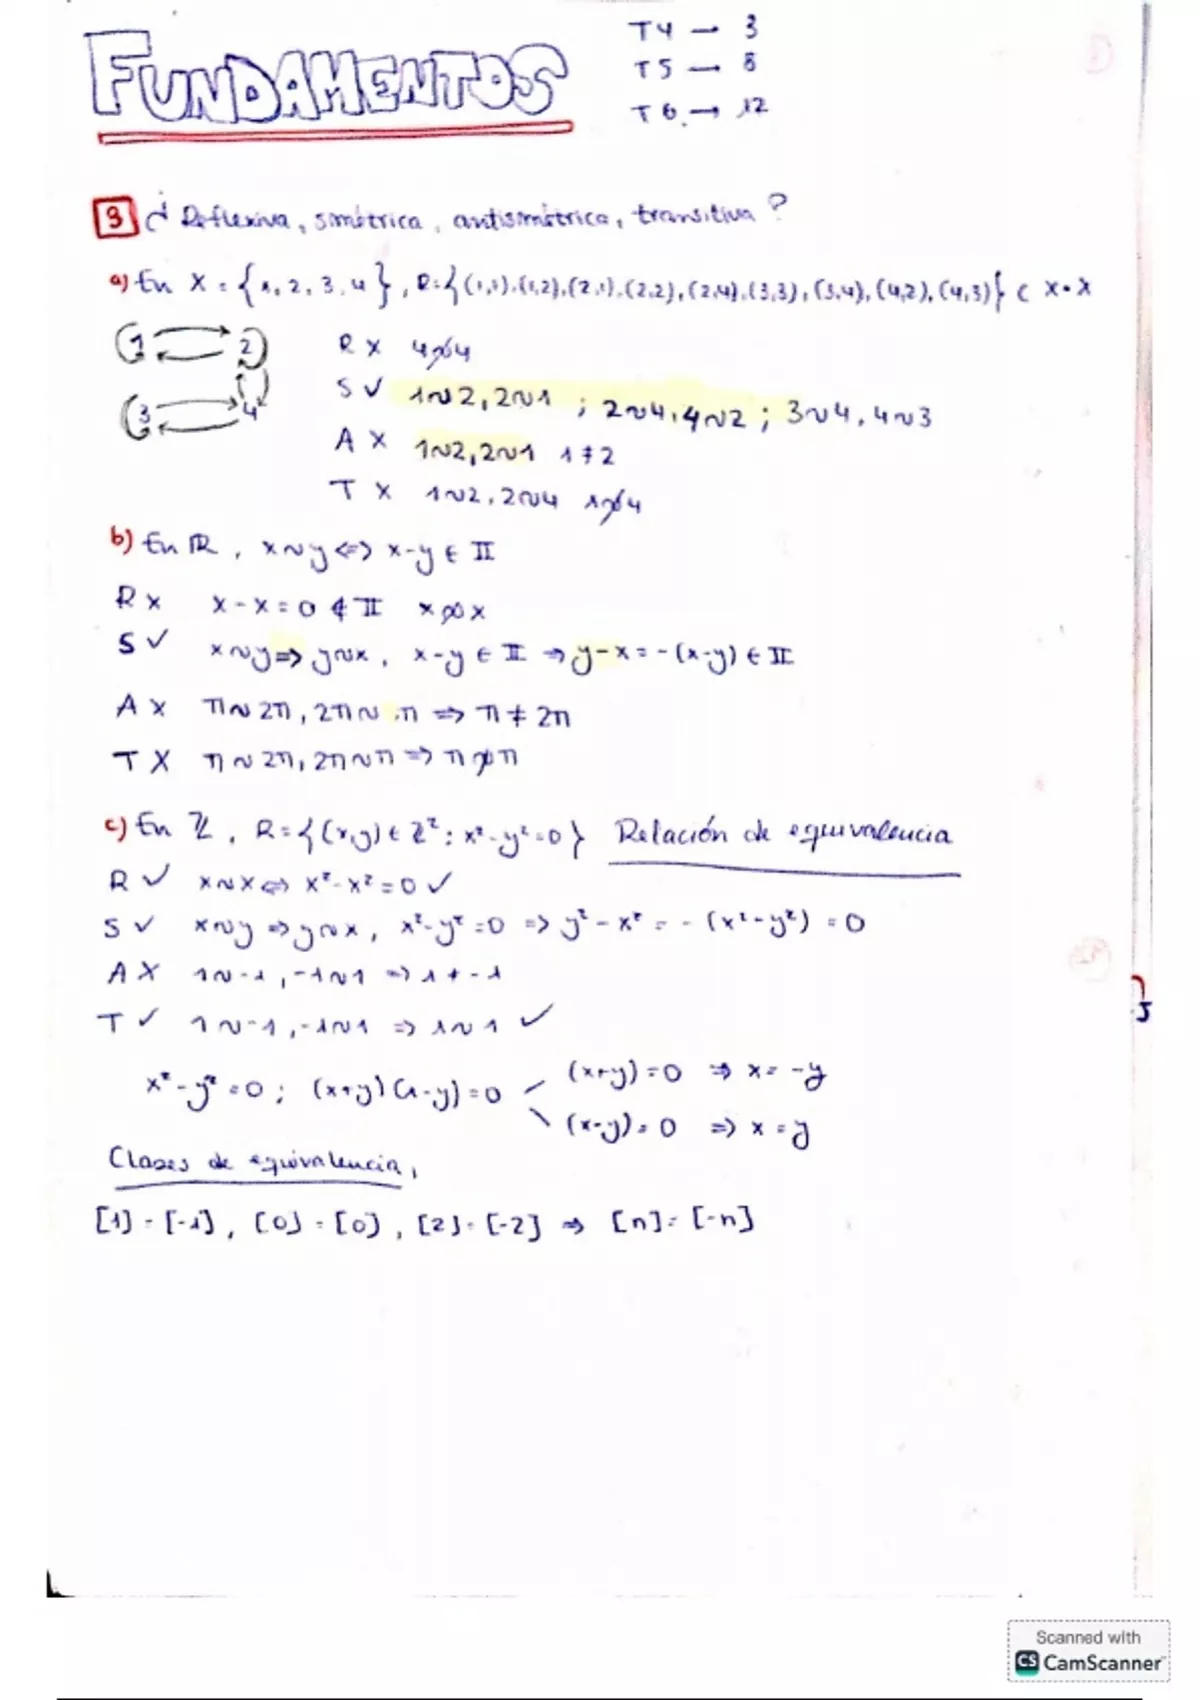 FUNDAMENTOS
T4 → 3
T5 → 8
T6 → 12
3 ¿ Reflexiva, simétrica, antisimétrica, transitiva ?
a) En X = {1, 2, 3, 4}, R={(1,1),(1,2),(2,1),(2,2),(2,4),(3,3),(3,4),(4,2),(4,3)} ⊂ X·X
1 2
3 4
R X 4≁4
S ✓ 1∼2, 2∼1 ; 2∼4, 4∼2 ; 3∼4, 4∼3
A X 1∼2, 2∼1 1≠2
T X 1∼2, 2∼4 1≁4
b) En ℝ, x∼y <=> x-y ∈ 𝕀
R x x-x=0 ∉ 𝕀 x≁x
S ✓ x∼y => y∼x, x-y ∈ 𝕀 => y-x = -(x-y) ∈ 𝕀
A X π∼2π, 2π∼π => π ≠ 2π
T X π∼2π, 2π∼π => π≁π
c) En ℤ, R={(x,y)∈ℤ²: x²-y²=0} Relación de equivalencia
R ✓ x∼x <=> x²-x²=0 ✓
S ✓ x∼y => y∼x, x²-y²=0 => y²-x² = -(x²-y²) = 0
A X 1∼-1, -1∼1 => 1≠-1
T ✓ 1∼-1, -1∼1 => 1∼1 ✓
x²-y²=0; (x+y)(x-y)=0
(x+y)=0 => x=-y
(x-y)=0 => x=y
Clases de equivalencia,
[1]=[-1], [0]=[0], [2]=[-2] => [n]=[-n]
Scanned with
CS CamScanner